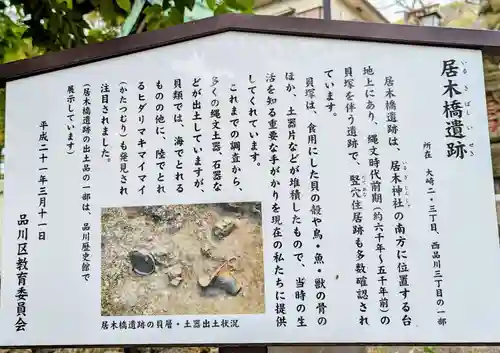 居木橋遺跡
いるきばしいせき
所在 大崎二・三丁目、西品川三丁目の一部
居木橋遺跡は、居木神社の南方に位置する台
地上にあり、縄文時代前期(約六千年〜五千年前)の
貝塚を伴う遺跡で、竪穴住居跡も多数確認され
ています。
貝塚は、食用にした貝の殻や鳥・魚・獣の骨の
ほか、土器片などが堆積したもので、当時の生
活を知る重要な手がかりを現在の私たちに提供
してくれています。
これまでの調査から、
多くの縄文土器、石器な
どが出土していますが、
貝類では、海でとれる
ものの他に、陸でとれ
るヒダリマキマイマイ
(かたつむり)も発見され
注目されました。
(居木橋遺跡の出土品の一部は、品川歴史館で
展示しています)
平成二十一年三月十一日
品川区教育委員会
居木橋遺跡の貝層・土器出土状況